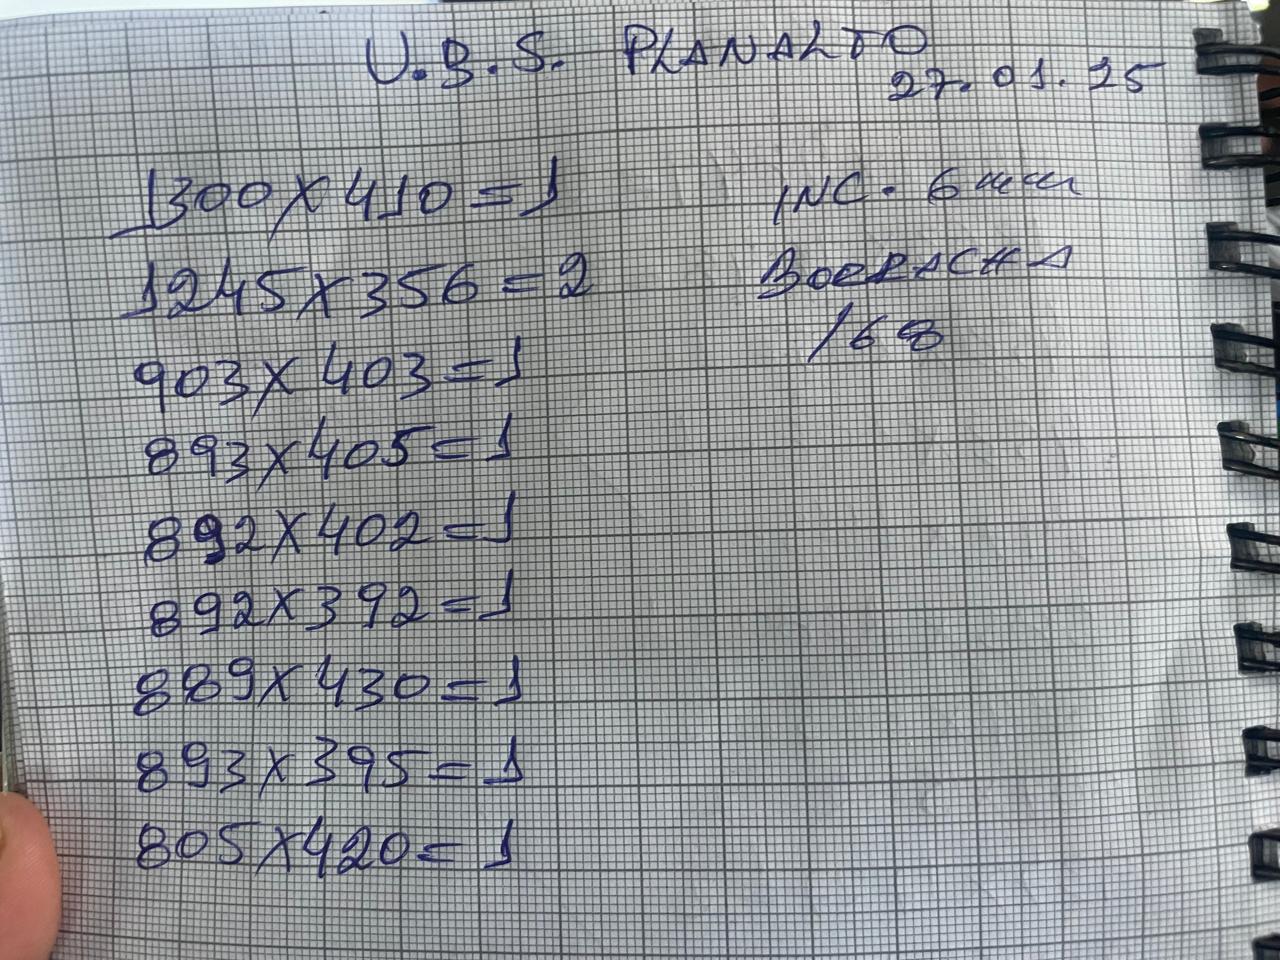 U.B.S. PLANALTO
27.01.25
1300X410=1
INC. 6mm
1245X356=2
BORRACHA
168
903X403=1
893X405=1
892X402=1
892X392=1
889X430=1
893X395=1
805X420=1